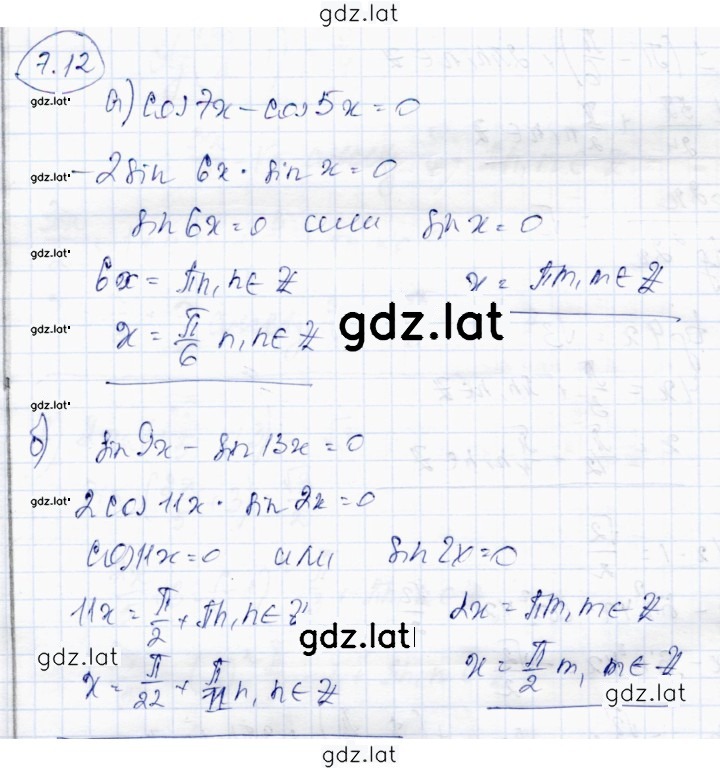 gdz.lat
7.12
а) cos 7x − cos 5x = 0
gdz.lat
gdz.lat − 2 sin 6x · sin x = 0
sin 6x = 0 или sin x = 0
gdz.lat
6x = πn, n ∈ ℤ x = πm, m ∈ ℤ
gdz.lat x = π/6 n, n ∈ ℤ gdz.lat
gdz.lat
б) sin 9x − sin 13x = 0
gdz.lat 2 cos 11x · sin 2x = 0
cos 11x = 0 или sin 2x = 0
11x = π/2 + πn, n ∈ ℤ 2x = πm, m ∈ ℤ
gdz.lat
gdz.lat x = π/22 + π/11 n, n ∈ ℤ x = π/2 m, m ∈ ℤ
gdz.lat
gdz.lat